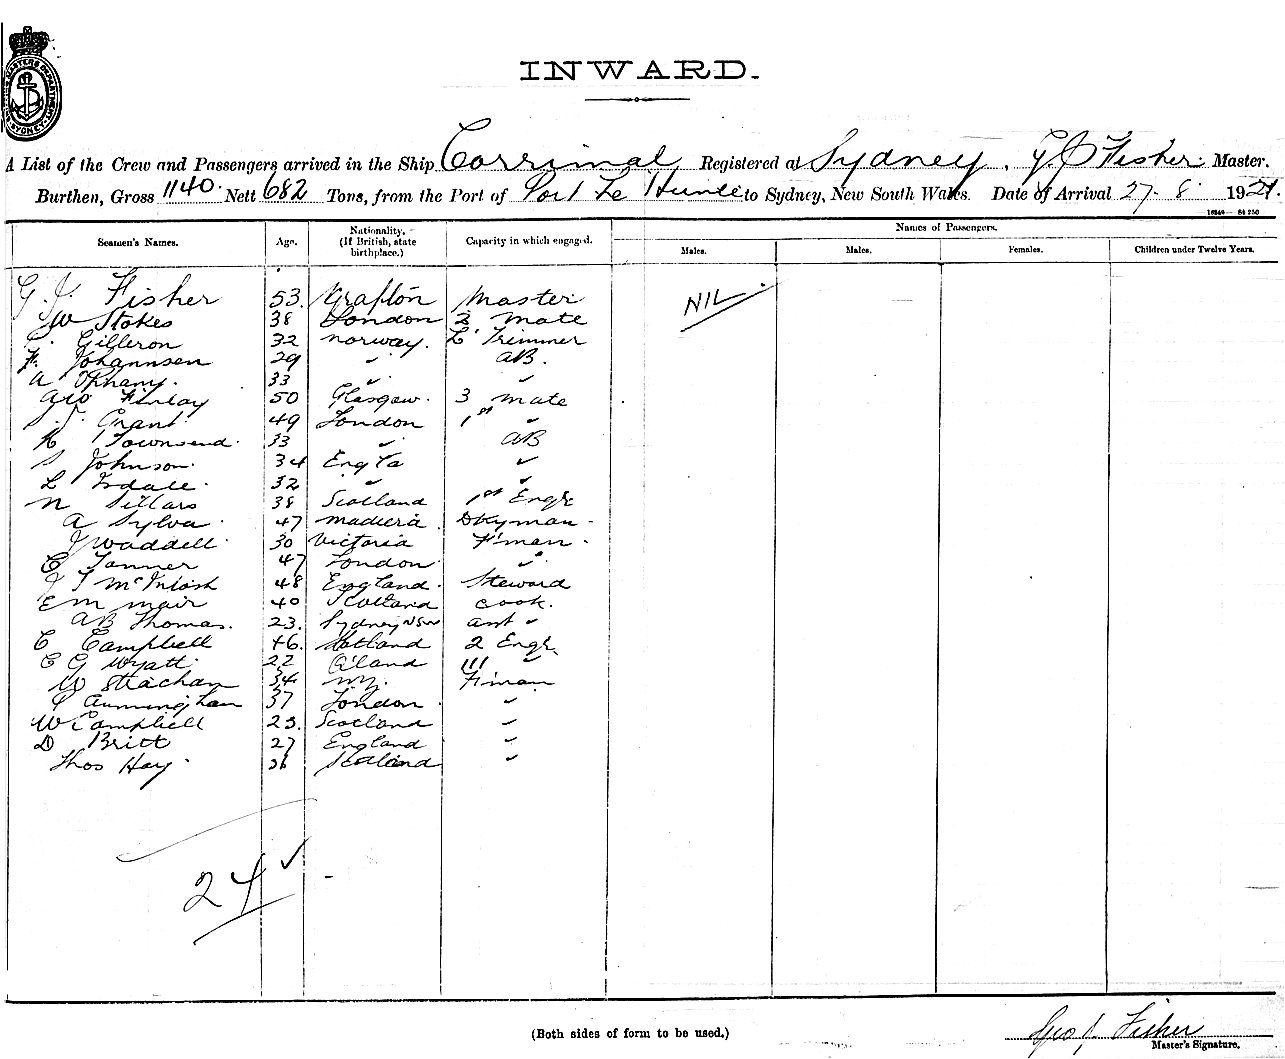 INWARD.
A List of the Crew and Passengers arrived in the Ship Corrimal Registered at Sydney. G J Fisher Master.
Burthen, Gross 1140 Nett 682 Tons, from the Port of Port Le Hunte to Sydney, New South Wales. Date of Arrival 27. 8 1921.
Seamen's Names. Age. Nationality. (If British, state birthplace.) Capacity in which engaged. Names of Passengers.
Males. Males. Females. Children under Twelve Years.
G. J. Fisher 53. Grafton Master NIL
W Stokes 38 London 2 Mate
Gilleron 32 Norway. L Trimmer
F. Johannsen 29 " AB.
A 33 " "
Geo Finlay 50 Glasgow. 3 Mate
Grant 49 London 1st "
R Townsend. 33 " AB
S Johnson. 34 Eng La "
L Isdale. 32 " "
N Sillars 38 Scotland 1st Engr
A Sylva 47 Madiera Dkyman
J Waddell 30 Victoria F'man
C Tanner 47 London "
J T McIntosh 48 England. Steward
E M Mair 40 Scotland Cook.
A B Thomas. 23. Sydney NSW asst "
C Campbell 46. Scotland 2 Engr
C G Wyatt 22 111 "
W Strachan 34 NZ. F'man
Cunningham 37 London "
W Campbell 23. Scotland "
D Britt 27 England "
Thos Hay. 26 Scotland "
24
(Both sides of form to be used.)
Geo J. Fisher
Master's Signature.